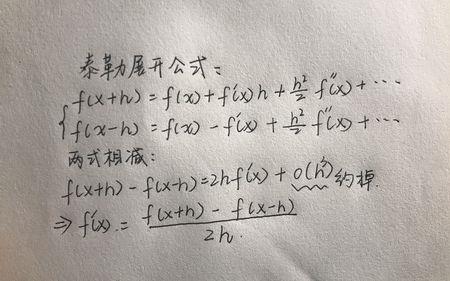 泰勒展开公式:
f(x+h) = f(x) + f'(x)h + h²/2 f''(x) + ⋯
f(x-h) = f(x) - f'(x) + h²/2 f''(x) + ⋯
两式相减:
f(x+h) - f(x-h) = 2hf'(x) + o(h²) 约掉.
⇒ f'(x) = f(x+h) - f(x-h) / 2h.